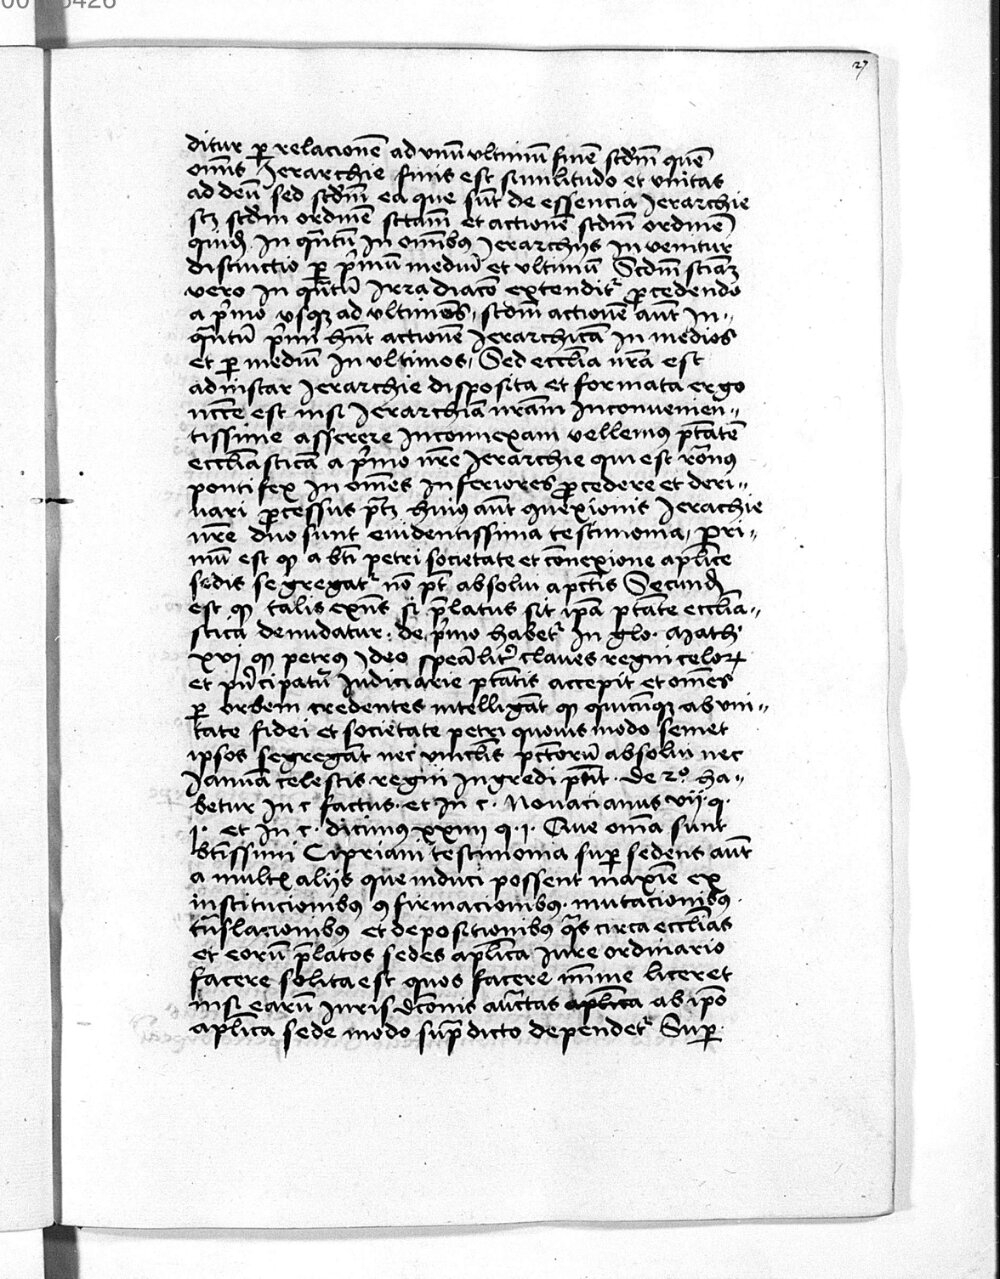 27
ditur ꝑ relacionē ad vnū vltimū finē scdm̄ quē
oīms Jerarchie finis est similitudo et vnitas
ad deū sed scdm̄ ea que sūt de essencia Jerarchie
scꝫ scdm̄ ordinē sciam̄ et actionē scdm̄ ordinē
quidē In qn̄tū In oīmbꝯ Jerarchijs Inuenitur
distinctio ꝑ pͥmū mediū et vltimū Scdm̄ sciam̄
vero In qn̄tū Irradiaco extenditͬ ꝓcedendo
a pͥmo vsqꝫ ad vltimos, scdm̄ actionē aūt In„
qn̄tū pͥmi hn̄t actionē Jerarchicā In medios
et ꝑ mediū In vltimos, Sed eccl̄ia nr̄a est
ad instar Jerarchie disposita et formata ergo
nc̄ce est nisi Jerarchiā nr̄am Inconuenien„
tissime asserere Inconnexam vellemꝯ ptātē
eccl̄iasticā a pͥmo nr̄e Jerarchie qui est rōnꝯ
pontifex In om̄es Inferiores ꝓcedere et deri„
uari ꝓcessus Huiꝯ aūt 9nexionis Jerachie
nr̄e duo sunt euidentissima testimonia, Pri„
mū est ꝙ a bt̄i petri societate et cōnexione aplīce
sedis segregatͬ nō pt̄ absolui a pctīs Secund̄
est ꝙ talis exn̄s si p̄latus sit ipā ptāte eccl̄ia„
sticā denudatur. de pͥmo habetͬ In glo. Math.
xvi ꝙ petrꝯ Ideo spēalitͬ claues regni celoꝝ
et pͥncipatū Iudiciarie ptātis accepit et om̄es
ꝑ orbem credentes intelligāt ꝙ quicūqꝫ ab vni„
tate fidei et societate petri quouis modo semet
ipsos segregāt nec vinclīs pctōrū absolui nec
Januā celestis regni Ingredi pn̄t. De 2º. ha„
betur In c factus. et In c. Nouacianus vii. q.
i. et In c. dicimꝯ xxiiii q. i. Que om̄a sunt
bt̄issimi Cipriani testimonia suꝑ sedens aūt
a mult̄ alijs que induci possent maxīe ex
institucionibꝯ 9firmacionibꝯ. mutacionibꝯ.
tn̄slacionibꝯ et deposicionibꝯ qͣs circa eccl̄ias
et eorū p̄latos sedes aplīca Iure ordinario
facere solita est quos facere mīme liceret
nisi earū Iuris dc̄onis auctas aplīca ab ipō
aplīca sede modo sup̄ dicto dependetͬ Suꝑ